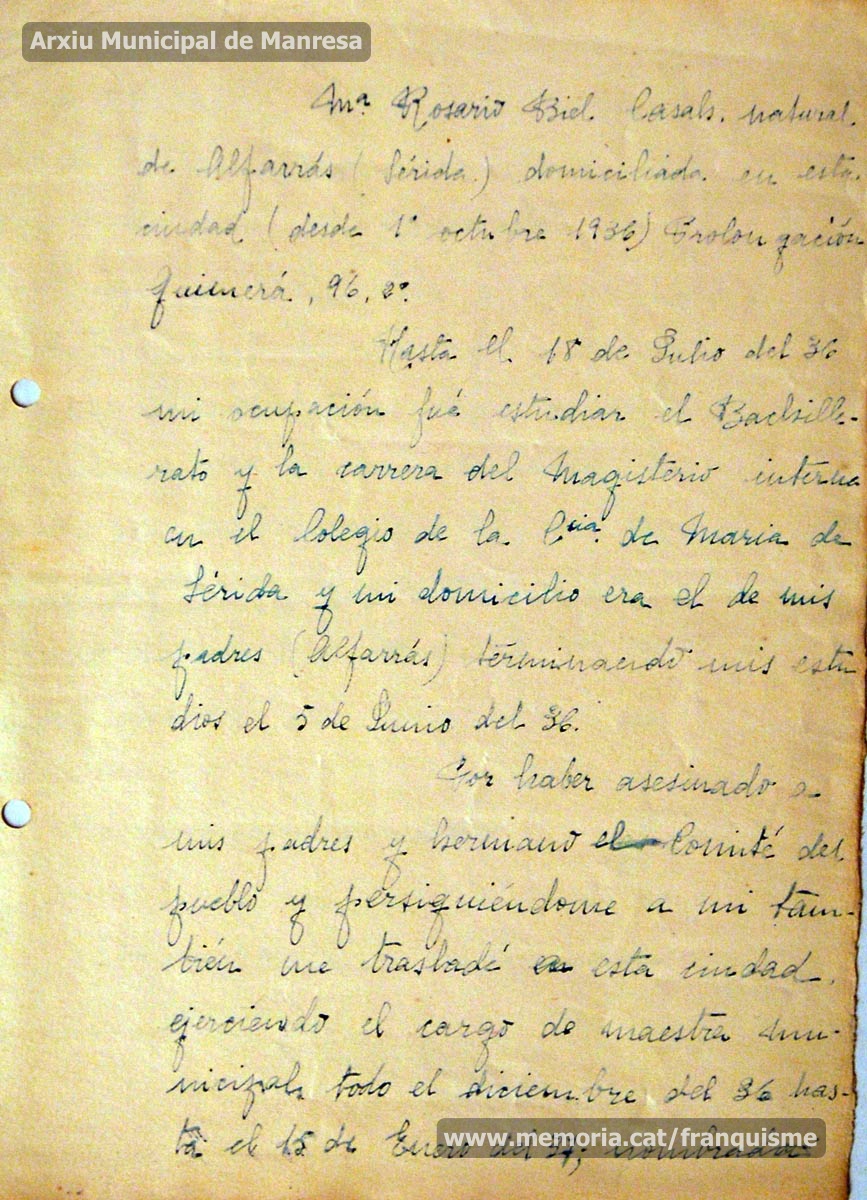 Arxiu Municipal de Manresa
Mª Rosario Biel Casals, natural
de Alfarrás (Lérida) domiciliada en esta
ciudad (desde 1º octubre 1936) Prolongación
Guimerá, 96, 2º.
Hasta el 18 de Julio del 36
mi ocupación fué estudiar el Bachille-
rato y la carrera del Magisterio interna
en el Colegio de la Cia. de Maria de
Lérida y mi domicilio era el de mis
padres (Alfarrás) terminando mis estu
dios el 5 de Junio del 36.
Por haber asesinado a
mis padres y hermano el Comité del
pueblo y persiguiéndome a mi tam-
bién me trasladé a esta ciudad,
ejerciendo el cargo de maestra mu-
nicipal, todo el diciembre del 36 has-
ta el 15 de Enero del 37; nombrada
www.memoria.cat/franquisme